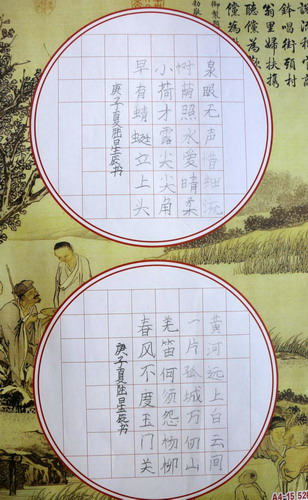 鈴唱街頭村
翁里婦扶携
泉眼无声惜细流
树荫照水爱晴柔
小荷才露尖尖角
早有蜻蜓立上头
庚子夏星辰书
黄河远上白云间
一片孤城万仞山
羌笛何须怨杨柳
春风不度玉门关
庚子夏星辰书
A4-15 52